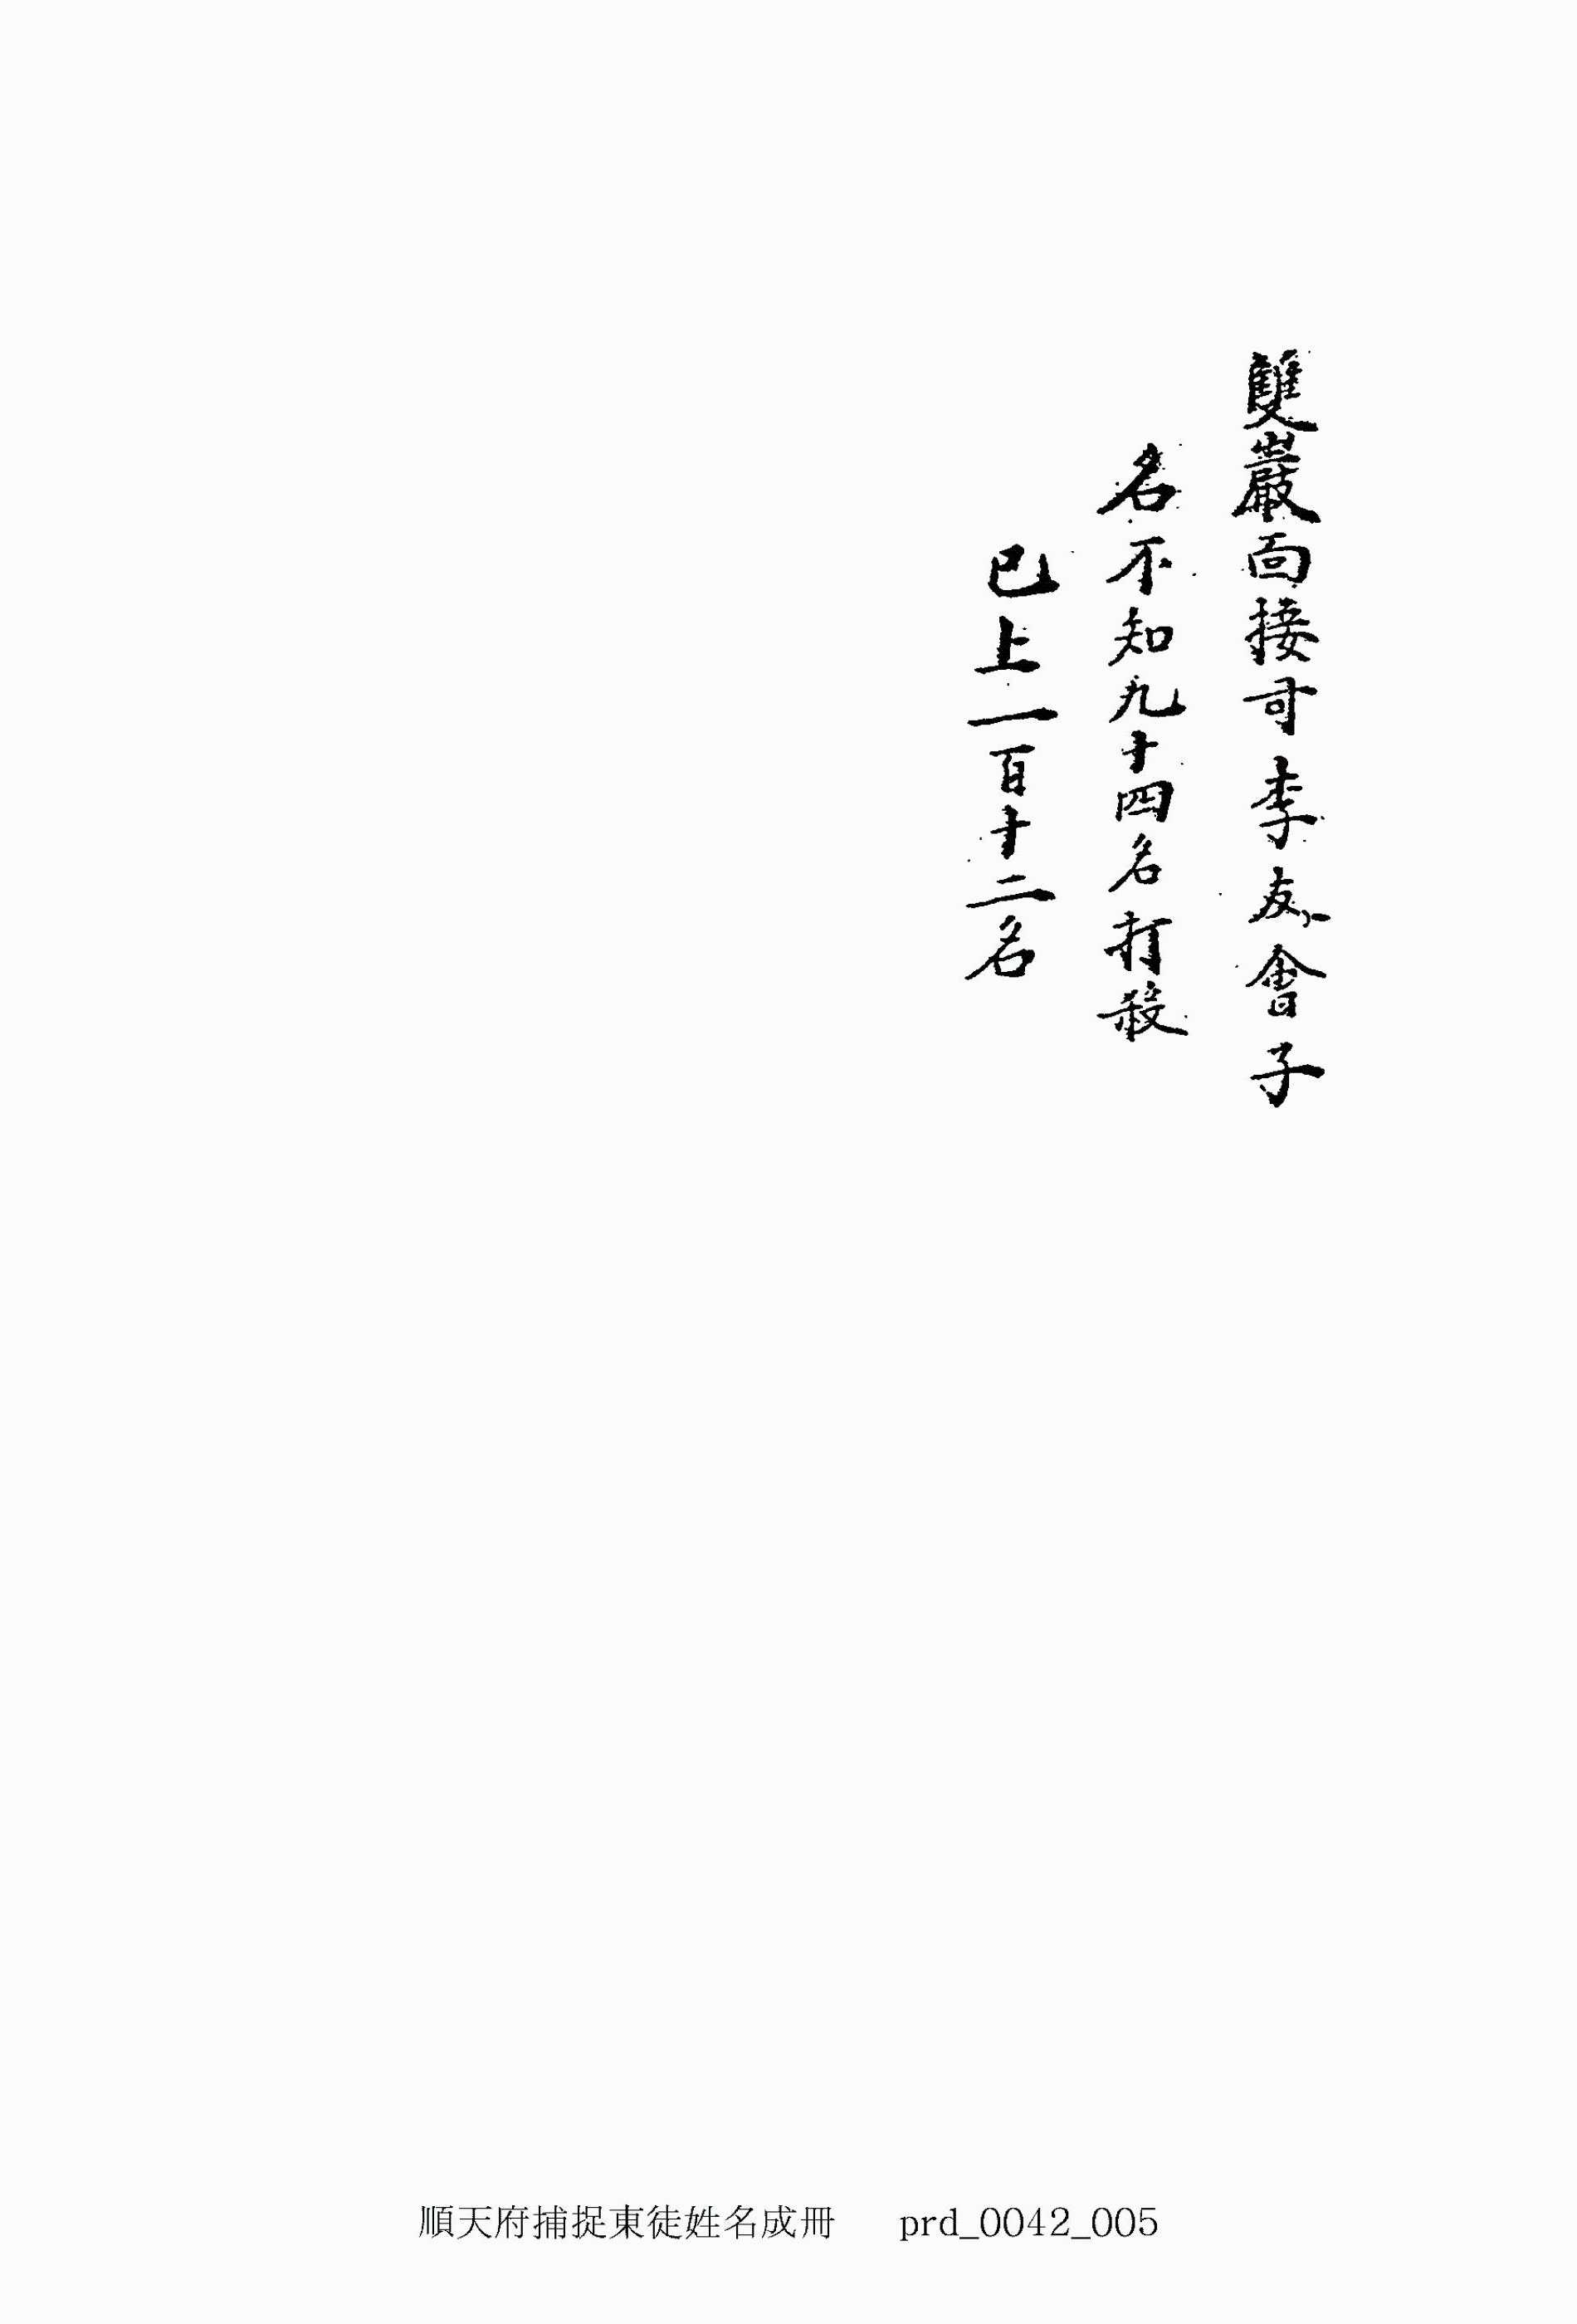 雙巖面接司李友會子
名不知九十四名打殺
已上一百十二名
順天府捕捉東徒姓名成冊 prd_0042_005